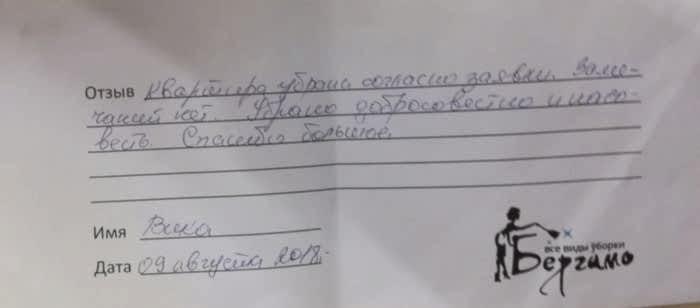 Отзыв Квартира убрана согласно заявки. Заме-
чаний нет. Убрано добросовестно и насо-
весть. Спасибо большое.
Имя Вика
Дата 09 августа 2018г.
все виды уборки
Бергамо